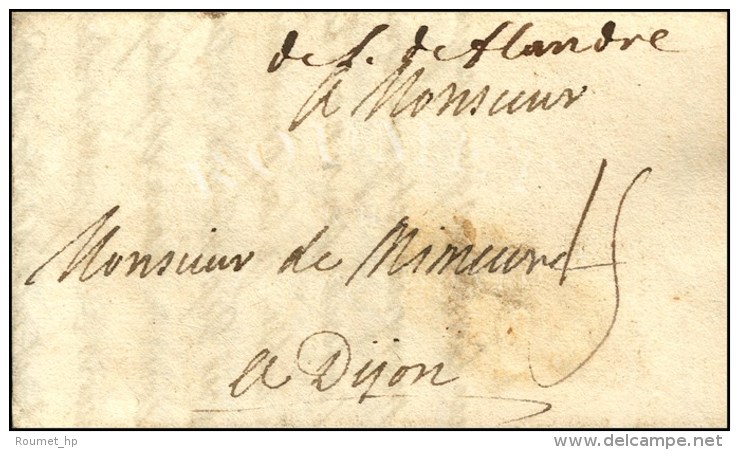 de L. de flandre
A Monsieur
Monsieur de Mimeure 15
a Dijon
Roumet_hp
delcampe.net